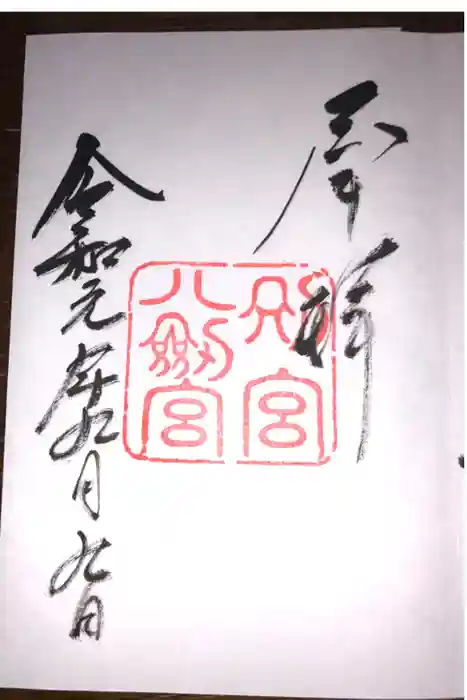 奉拝
別宮
八劔宮
令和元年九月九日